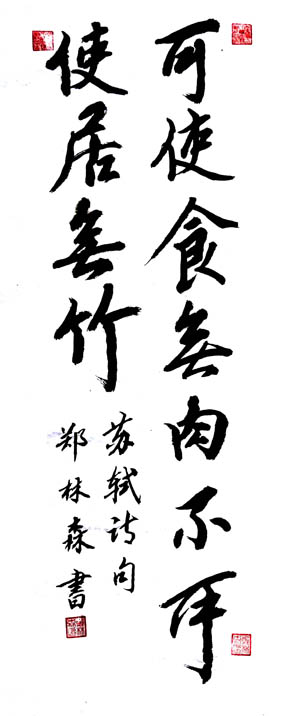 可使食無肉不可
使居無竹
苏轼诗句
郑林森書